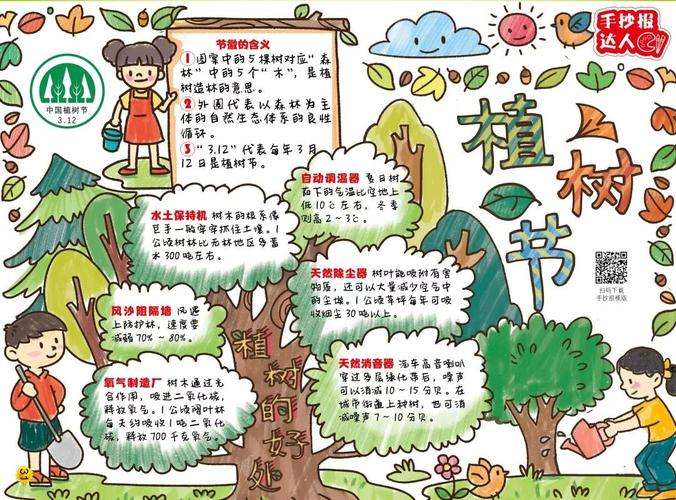 手抄报
达人
中国植树节
3.12
节徽的含义
1 图案中的5棵树对应“森
林”中的5个“木”,是植
树造林的意思。
2 外圈代表以森林为主
体的自然生态体系的良性
循环。
3 “3.12”代表每年3月
12日是植树节。
植
树
节
自动调温器 夏日树
荫下的气温比空地上
低10℃左右,冬季
则高2~3℃。
水土保持机 树木的根系像
巨手一般牢牢抓住土壤。1
公顷树林比无林地区多蓄
水300吨左右。
天然除尘器 树叶能吸附有害
物质,还可以大量减少空气中
的尘埃。1公顷草坪每年可吸
收烟尘30吨以上。
风沙阻隔墙 风遇
上防护林,速度要
减弱70%~80%。
天然消音器 汽车高音喇叭
穿过多层绿化带后,噪声
可以消减10~15分贝。在
城市街道上种树,也可消
减噪声7~10分贝。
氧气制造厂 树木通过光
合作用,吸进二氧化碳,
释放氧气。1公顷阔叶林
每天约吸收1吨二氧化
碳,释放700千克氧气。
植树的好处
扫码下载
手抄报模版
31